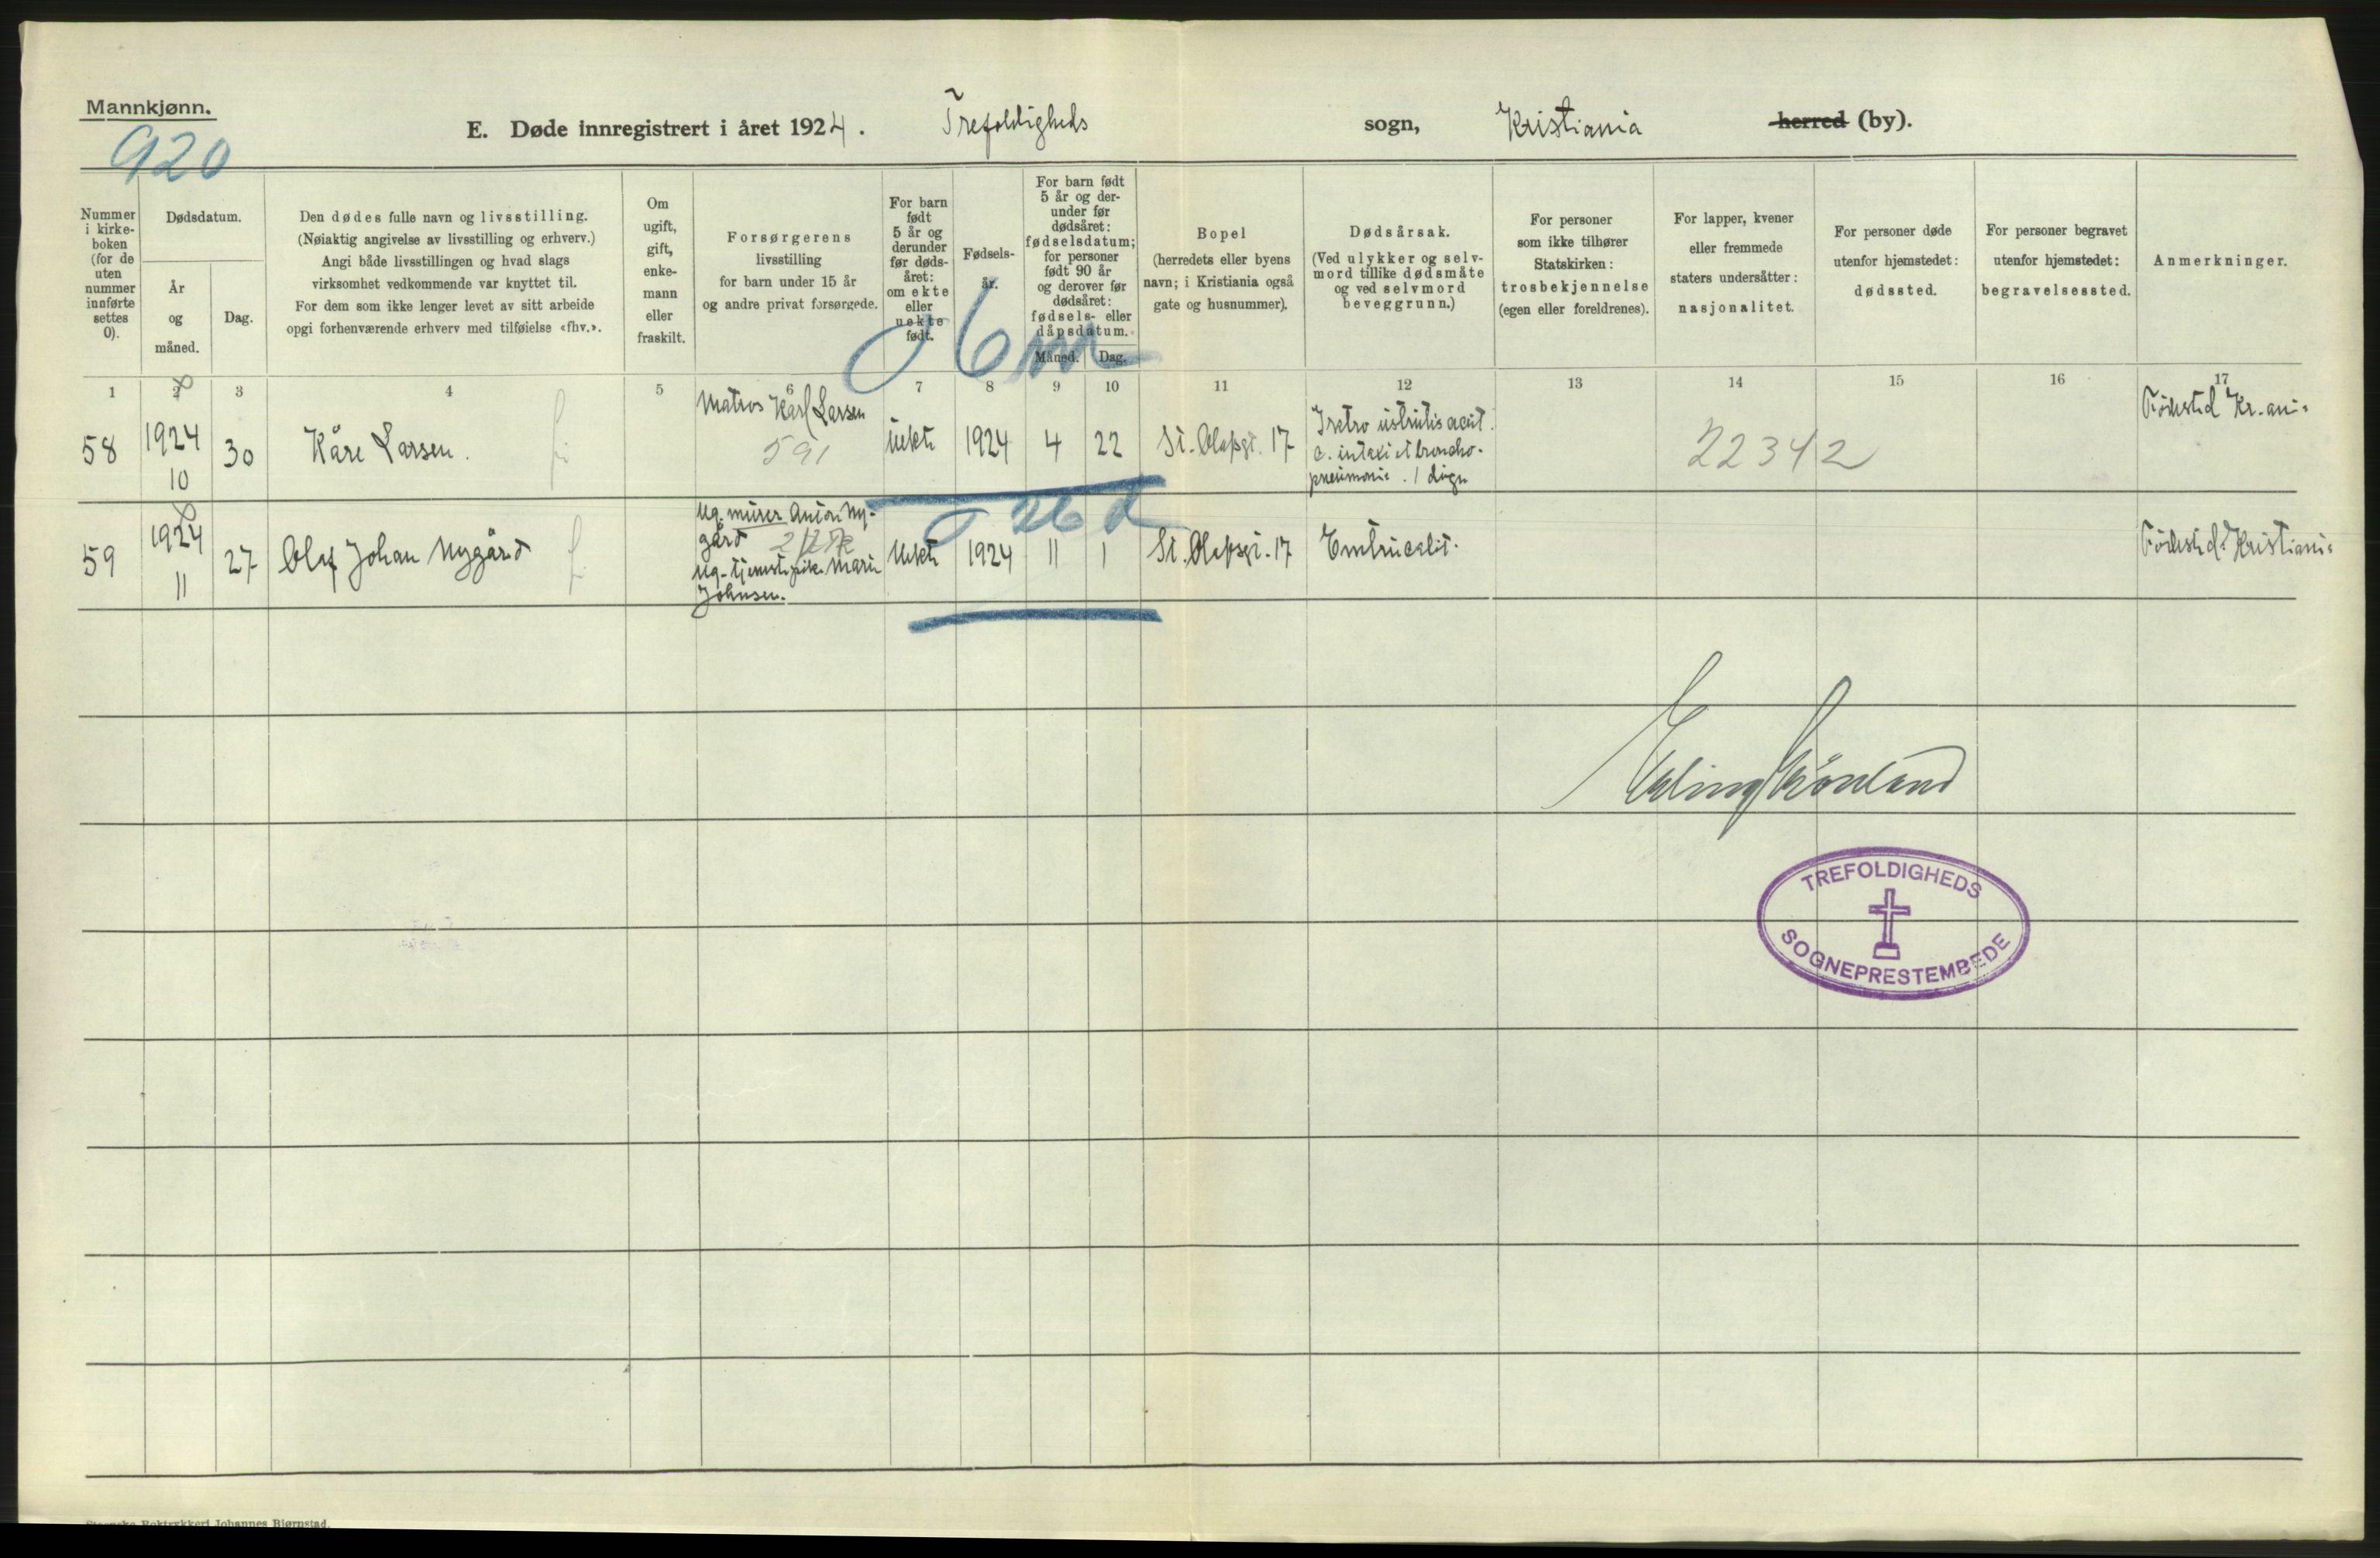 Mannkjønn.
920
E. Døde innregistrert i året 1924. Trefoldigheds sogn, Kristiania herred (by).
Nummer
i kirke-
boken
(for de
uten
nummer
innførte
settes
0).
Dødsdatum.
År
og
måned.
Dag.
Den dødes fulle navn og livsstilling.
(Nøiaktig angivelse av livsstilling og erhverv.)
Angi både livsstillingen og hvad slags
virksomhet vedkommende var knyttet til.
For dem som ikke lenger levet av sitt arbeide
opgi forhenværende erhverv med tilføielse «fhv.».
Om
ugift,
gift,
enke-
mann
eller
fraskilt.
Forsørgerens
livsstilling
for barn under 15 år
og andre privat forsørgede.
For barn
født
5 år og
derunder
før døds-
året:
om ekte
eller
uekte
født.
Fødsels-
år.
For barn født
5 år og der-
under før
dødsåret:
fødselsdatum;
for personer
født 90 år
og derover før
dødsåret:
fødsels- eller
dåpsdatum.
Måned. Dag.
Bopel
(herredets eller byens
navn; i Kristiania også
gate og husnummer).
Dødsårsak.
(Ved ulykker og selv-
mord tillike dødsmåte
og ved selvmord
beveggrunn.)
For personer
som ikke tilhører
Statskirken:
trosbekjennelse
(egen eller foreldrenes).
For lapper, kvener
eller fremmede
staters undersåtter:
nasjonalitet.
For personer døde
utenfor hjemstedet:
dødssted.
For personer begravet
utenfor hjemstedet:
begravelsessted.
Anmerkninger.
6 m
1 2 3 4 5 6 7 8 9 10 11 12 13 14 15 16 17
58
1924
10
30
Kåre Larsen.
Matros Karl Larsen
591
Uekte
1924
4
22
St. Olafsgt. 17
pneumoni. 1 døgn
22342
Fødested Kr.ania
26 d
59
1924
11
27
Olaf Johan Nygård
Ug. murer Anton Ny-
gård
Ug. tjenestepike Marie
Johnsen.
Uekte
1924
11
1
St. Olafsgt. 17
Fødested: Kristiania
Erling Grønland
TREFOLDIGHEDS
SOGNEPRESTEMBEDE
Steenske Boktrykkeri Johannes Bjørnstad.